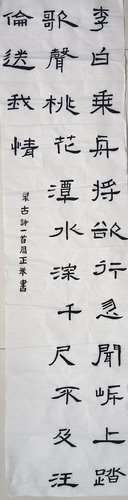 李白乘舟將欲行忽聞岸上踏
歌聲桃花潭水深千尺不及汪
倫送我情
录古詩一首正書